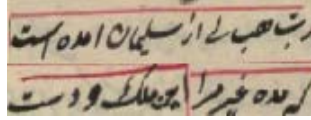 رب هب لی از سلیمان امده است
که مده غیر مرا این ملک و دست